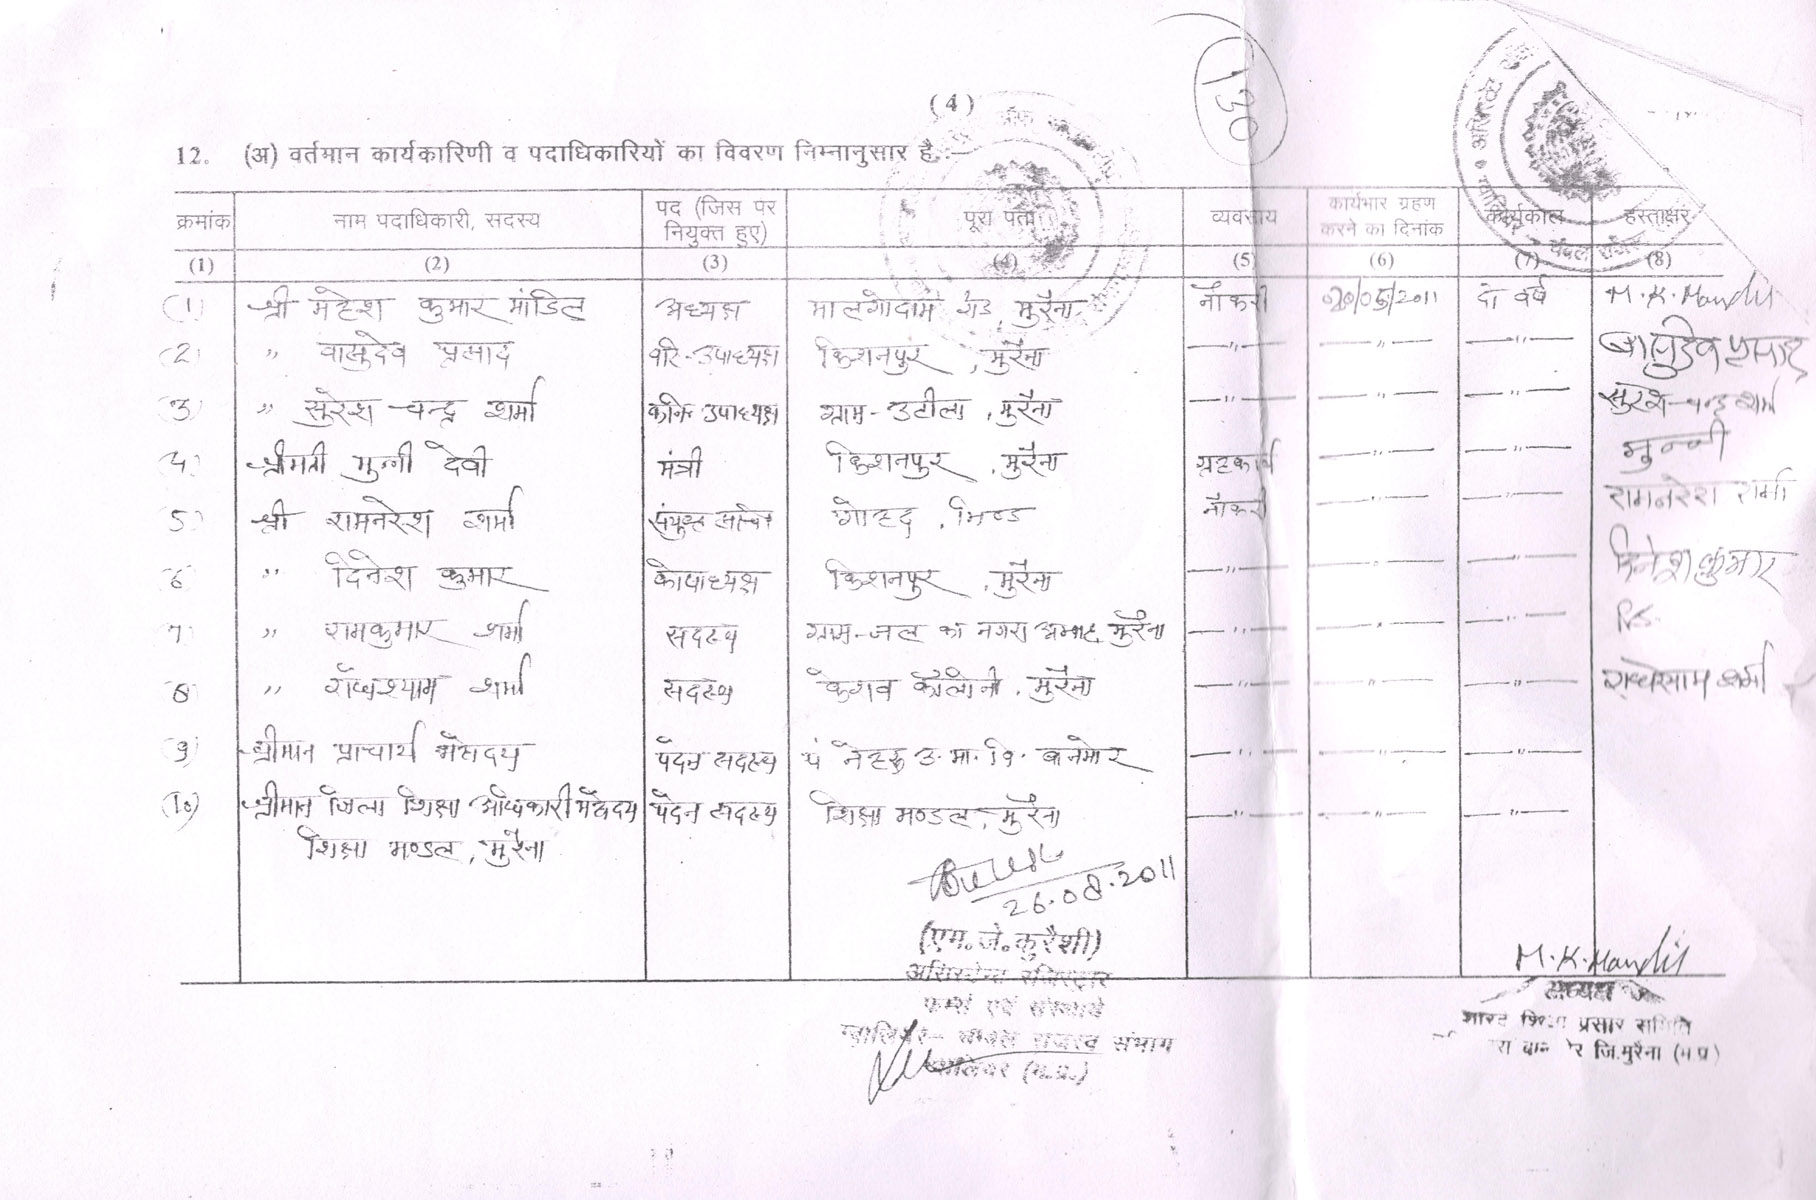 130
(4)
12. (अ) वर्तमान कार्यकारिणी व पदाधिकारियों का विवरण निम्नानुसार है :—
क्रमांक नाम पदाधिकारी, सदस्य पद (जिस पर नियुक्त हुए) पूरा पता व्यवसाय कार्यभार ग्रहण करने का दिनांक कार्यकाल हस्ताक्षर
(1) (2) (3) (4) (5) (6) (7) (8)
(1) श्री महेश कुमार मांडिल अध्यक्ष मालगोदाम रोड, मुरैना नौकरी /05/2011 दो वर्ष M.K.Mandil
(2) ,, वासुदेव प्रसाद वरि-उपाध्यक्ष किशनपुर, मुरैना —,,— —,,— —,,— बासुदेव प्रसाद
(3) ,, सुरेश चन्द्र शर्मा कनि-उपाध्यक्ष ग्राम-उटीला, मुरैना —,,— —,,— —,,— सुरेश चन्द्र शर्मा
(4) श्रीमती मुन्नी देवी मंत्री किशनपुर, मुरैना ग्रहकार्य —,,— —,,— मुन्नी
(5) श्री रामनरेश शर्मा संयुक्त सचिव गोहद, भिण्ड नौकरी —,,— —,,— रामनरेश शर्मा
(6) ,, दिनेश कुमार कोषाध्यक्ष किशनपुर, मुरैना —,,— —,,— —,,— दिनेश कुमार
(7) ,, रामकुमार शर्मा सदस्य ग्राम-जल का नगरा अम्बाह मुरैना —,,— —,,— —,,—
(8) ,, राधेश्याम शर्मा सदस्य केशव कॉलोनी, मुरैना —,,— —,,— —,,— राधेसाम शर्मा
(9) श्रीमान प्राचार्य महोदय पदेन सदस्य पं नेहरू उ.मा.वि. बानमोर —,,— —,,— —,,—
(10) श्रीमान जिला शिक्षा अधिकारी महोदय पदेन सदस्य शिक्षा मण्डल, मुरैना —,,— —,,— —,,—
शिक्षा मण्डल, मुरैना
26.08.2011
(एम.जे.कुरैशी)
असिस्टेन्ट रजिस्ट्रार
फर्म्स एवं संस्थायें
ग्वालियर-चम्बल राजस्व संभाग
ग्वालियर (म.प्र.)
M.K.Mandil
अध्यक्ष
शिक्षा प्रसार समिति
जि.मुरैना (म.प्र)